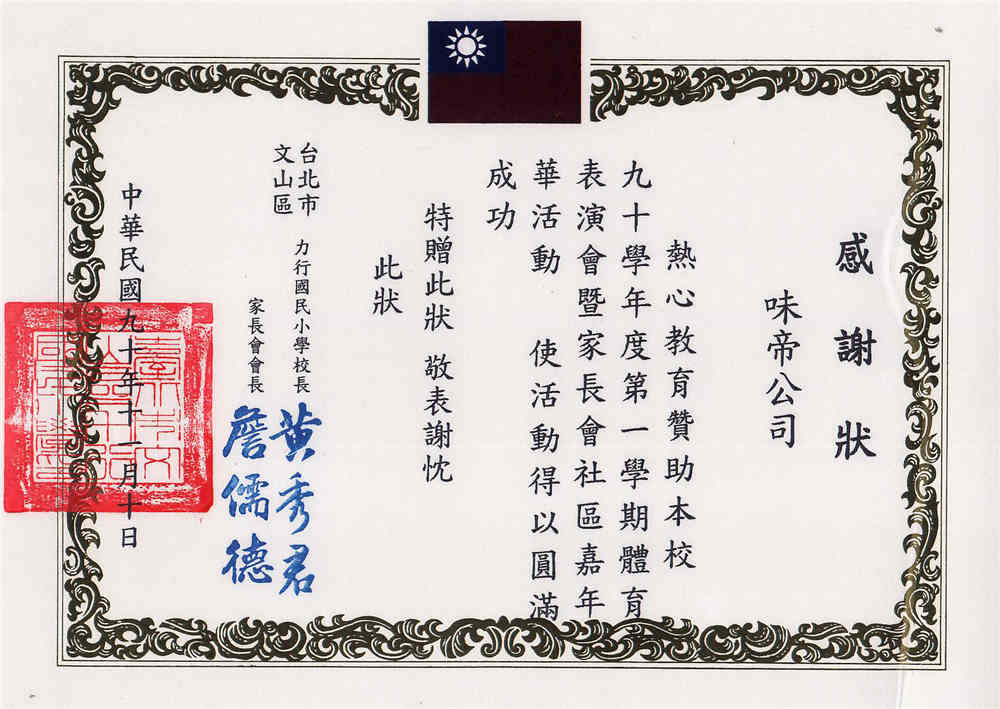 感謝狀
味帝公司
熱心教育贊助本校
九十學年度第一學期體育
表演會暨家長會社區嘉年
華活動 使活動得以圓滿
成功
特贈此狀 敬表謝忱
此狀
台北市
文山區
力行國民小學校長 黃秀君
家長會會長 詹儒德
中華民國九十年十一月十日